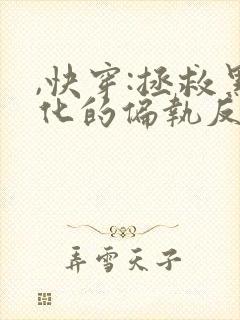 ,快穿:拯救黑
化的偏执反
弄雪天子